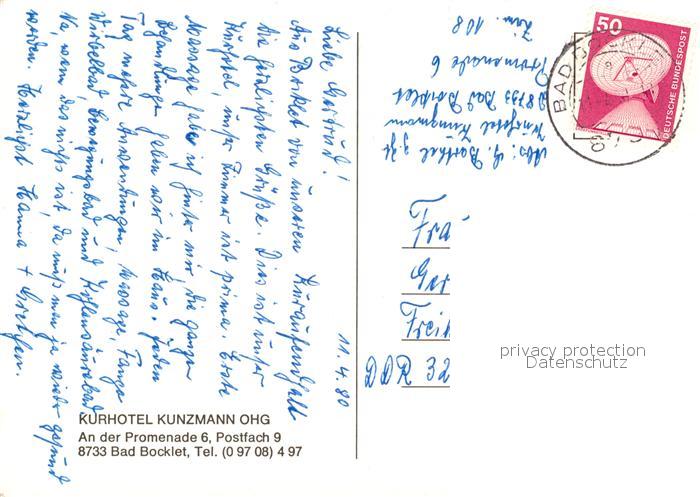 11.4.80
Liebe Gertrud!
Aus Bocklet von unseren Kuraufenthalt
die herzlichsten Grüße. Dies ist unser
Kurhotel, unser Zimmer ist prima. Erste
Massage habe ich hinter mir, die ganzen
Behandlungen haben wir im Haus. Jeden
Tag mehrere Anwendungen, Massage, Fango
Wirbelbad, Bewegungsbad und Kohlensäurebad
Na, wenn das nichts ist, da muß man ja wieder gesund
werden. Herzlichst Hanna +
KURHOTEL KUNZMANN OHG
An der Promenade 6, Postfach 9
8733 Bad Bocklet, Tel. (0 97 08) 4 97
Abs: G. Barthel z. Zt.
Kurhotel Kunzmann
D 8733 Bad Bocklet
Promenade 6
Zim. 108
50
DEUTSCHE BUNDESPOST
BAD BOCKLET
8733
Fra
Ger
Frei
DDR 32
privacy protection
Datenschutz